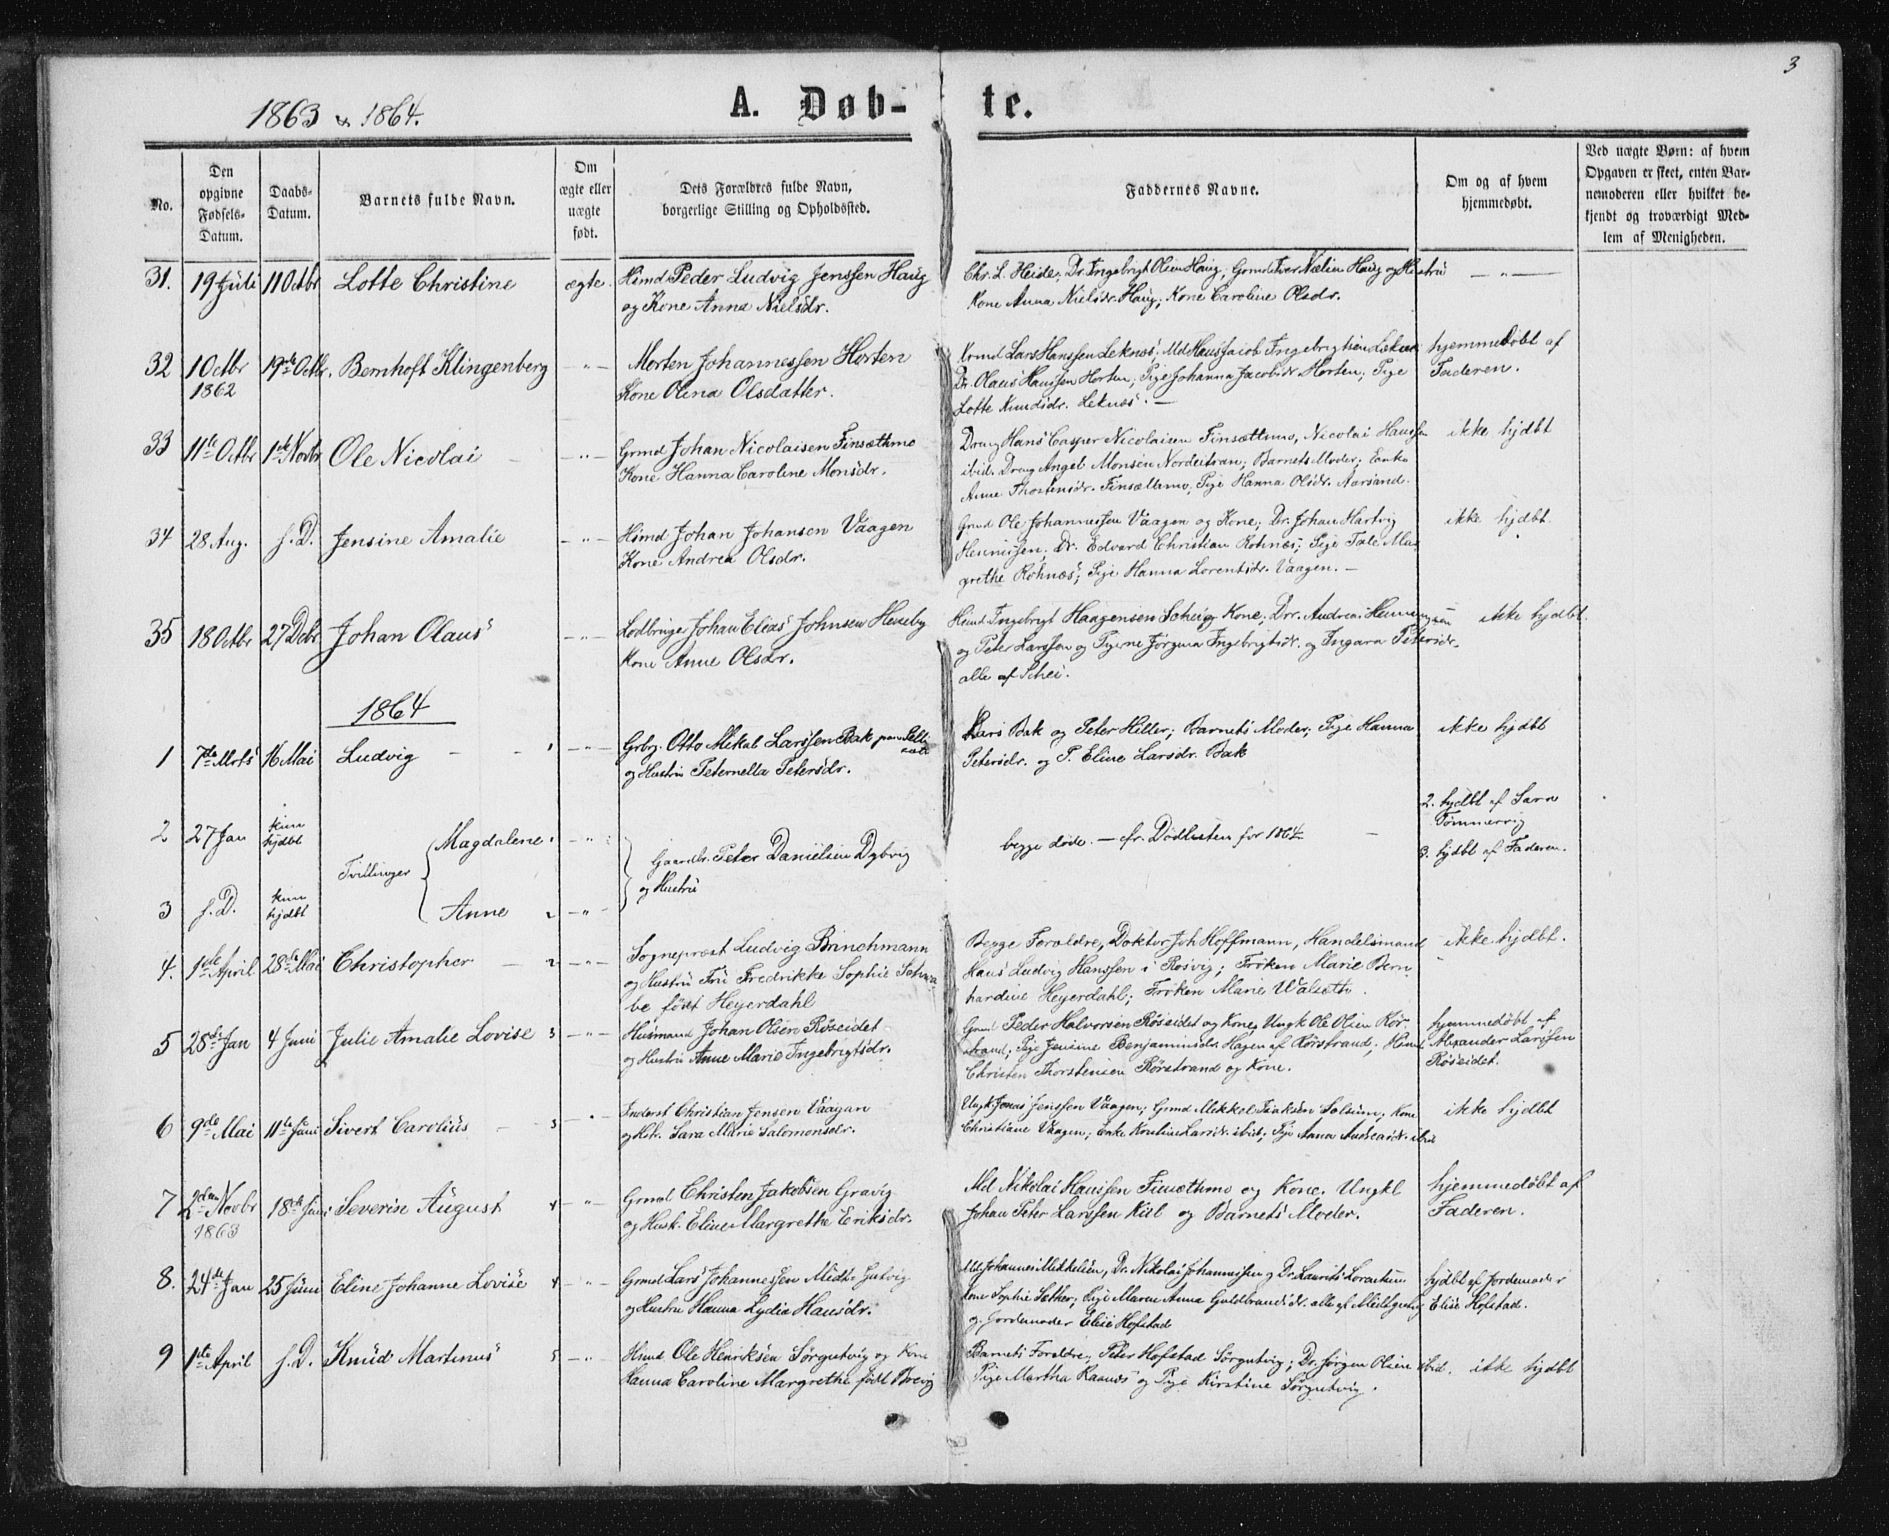 3
1863 & 1864.
A. Døb- te.
No.
Den opgivne Fødsels-Datum.
Daabs-Datum.
Barnets fulde Navn.
Om ægte eller uægte født.
Dets Forældres fulde Navn, borgerlige Stilling og Opholdssted.
Faddernes Navne.
Om og af hvem hjemmedøbt.
Ved uægte Børn: af hvem Opgaven er skeet, enten Barnemoderen eller hvilket bekjendt og troværdigt Medlem af Menigheden.
31. 19 Juli 11 Octbr Lotte Christine ægte. Hsmd Peder Ludvig Jenssen Haug
og Kone Anna Nielsdr.
Chr. L. Heide; Dr. Ingebrigt Olsen Haug; Grmd Iver Nælien Haug og Hustru — „ —
Kone Anna Nielsdr. Haug; Kone Caroline Olsdr.
32 1 Octbr 19de Octbr. Bernhoft Klingenberg — „ — Morten Johannessen Horten
1862 Kone Olena Olsdatter.
Grmd Lars Hanssen Leknæs; Md Hans Jacob Ingebrigtsen Leknæs hjemmedøbt af
Dr. Olaus Hanssen Horten; Pige Johanna Jacobsdr. Horten; Pige Faderen.
Lotte Knudsdr. Leknæs. —
33 11te Octbr 1ste Novbr Ole Nicolai — „ — Grmd Johan Nicolaisen Finsæthmo
Kone Hanna Caroline Monsdr.
Dreng Hans Casper Nicolaisen Finsættmo, Nicolai Hanssen ikke hjdbt
ibid. Dreng Angel Monsen Nordeitran; Barnets Moder; Enke
Anne Thorstensdr. Finsættmo, Pige Hanna Olsdr. Aarsand.
34 28 Aug. s. D. Jensine Amalie — „ — Hsmd Johan Johansen Vaagen
Kone Andrea Olsdr.
Grmd Ole Johannessen Vaagen og Kone; Dr. Johan Hartvig ikke hjdbt.
Hennissen; Dr. Edvard Christian Rohnæs; Pige Tale Mar
grethe Rohnæs; Pige Hanna Lorentsdr. Vaagen. —
35 18 Octbr 27 Dcbr Johan Olaus — „ — Lodbruger Johan Elias Johnsen Heseby
Kone Anne Olsdr.
Hsmd Ingebrigt Haagensen Schei og Kone; Drr. Andreas Henningsen ikke hjdbt.
og Peter Larssen og Pigerne Jørgina Ingebrigtsdr. og Ingara Petersdr.
alle af Schei.
1864
1 7de Mrts 16 Mai Ludvig 1 — „ — Grbrg. Otto Mikal Larssen Bak paa
og Hustru Peternella Petersdr.
Lars Bak og Peter Hiller; Barnets Moder; Pige Hanna ikke hjdbt
Petersdr. og P. Eline Larsdr. Bak
2 27 Jan kun hjdbt Magdalene 1 — „ —
Tvillinger Gaardbr. Peter Danielsen Dybvig
og Hustru
begge døde. — cfr. Dødlisten for 1864 —
2. hjdbt af Sara
Tømmervig
3. hjdbt af Faderen.
3 s. D. kun hjdbt Anne 2 — „ —
4. 1ste April 28de Mai Christopher — 2 — „ — Sogneprest Ludvig Brinchmann
og Hustru Fru Fredrikke Sophie
be født Heyerdahl
Begge Forældre, Doktor Joh Hoffmann, Handelsmand ikke hjdbt.
Hans Ludvig Hanssen i Rosvig; Frøken Marie Bern
hardine Heyerdahl; Frøken Marie Walseth.
5 28de Jan 4 Juni Julie Amalie Lovise 3 — „ — Husmand Johan Olsen Røseidet
og Hustru Anne Marie Ingebrigtsdr.
Grmd Peder Halvorsen Røseidet og Kone; Ungk Ole Olsen Rør- hjemmedøbt af
strand; Pige Jensine Benjaminsdr. Hagen af Rørstrand; Hsmd Alexander Larssen
Christen Thorstensen Rørstrand og Kone. Røseidet.
6 9de Mai 11te Juni Sivert Carolius — 3 — „ — Inderst Christian Jensen Vaagan
og Hst. Sara Marie Salomonsdr.
Ungk. Jonas Jenssen Vaagen; Grmd Mikkel Isaksen Solsem; Kone ikke hjdbt
Christiane Vaagen; Enke Larsdr. ibid; Pige Anna Andreasdr. ibid
7 2den Novbr 18de Juni Severin August 4 — „ — Grmd Christen Jakobsen Gravig
1863 og Hust. Eline Margrethe Eriksdr.
Md Nikolai Hanssen Finsæthmo og Kone. Ungkl hjemmedøbt af
Johan Peter Larssen Kiil og Barnets Moder. Faderen.
8. 24de Jan 25 Juni Eline Johanne Lovise 4 — „ — Grmd Lars Johannessen Midt-Gutvig
og Hustru Hanna Lydia Hansdr.
Md Johannes Mikkelsen, Dr. Nikolai Johannessen og Dr. Laurits Lorentsen hjdbt af Jordemoder
Kone Sophie Sæther; Pige Maren Anna Guldbrandsdr. alle af Midtgutvig Elise Hofstad.
og Jordemoder Elise Hofstad
9 1ste April s. D. Knud Martinus 5 — „ — Hsmd Ole Henriksen Sørgutvig og Kone
Hanna Caroline Margrethe født Brevig
Barnets Forældre; Peter Hofstad Sørgutvig; Dr. Jørgen Olsen ibid. ikke hjdbt
Pige Martha Raanes og Pige Kirstine Sørgutvig.